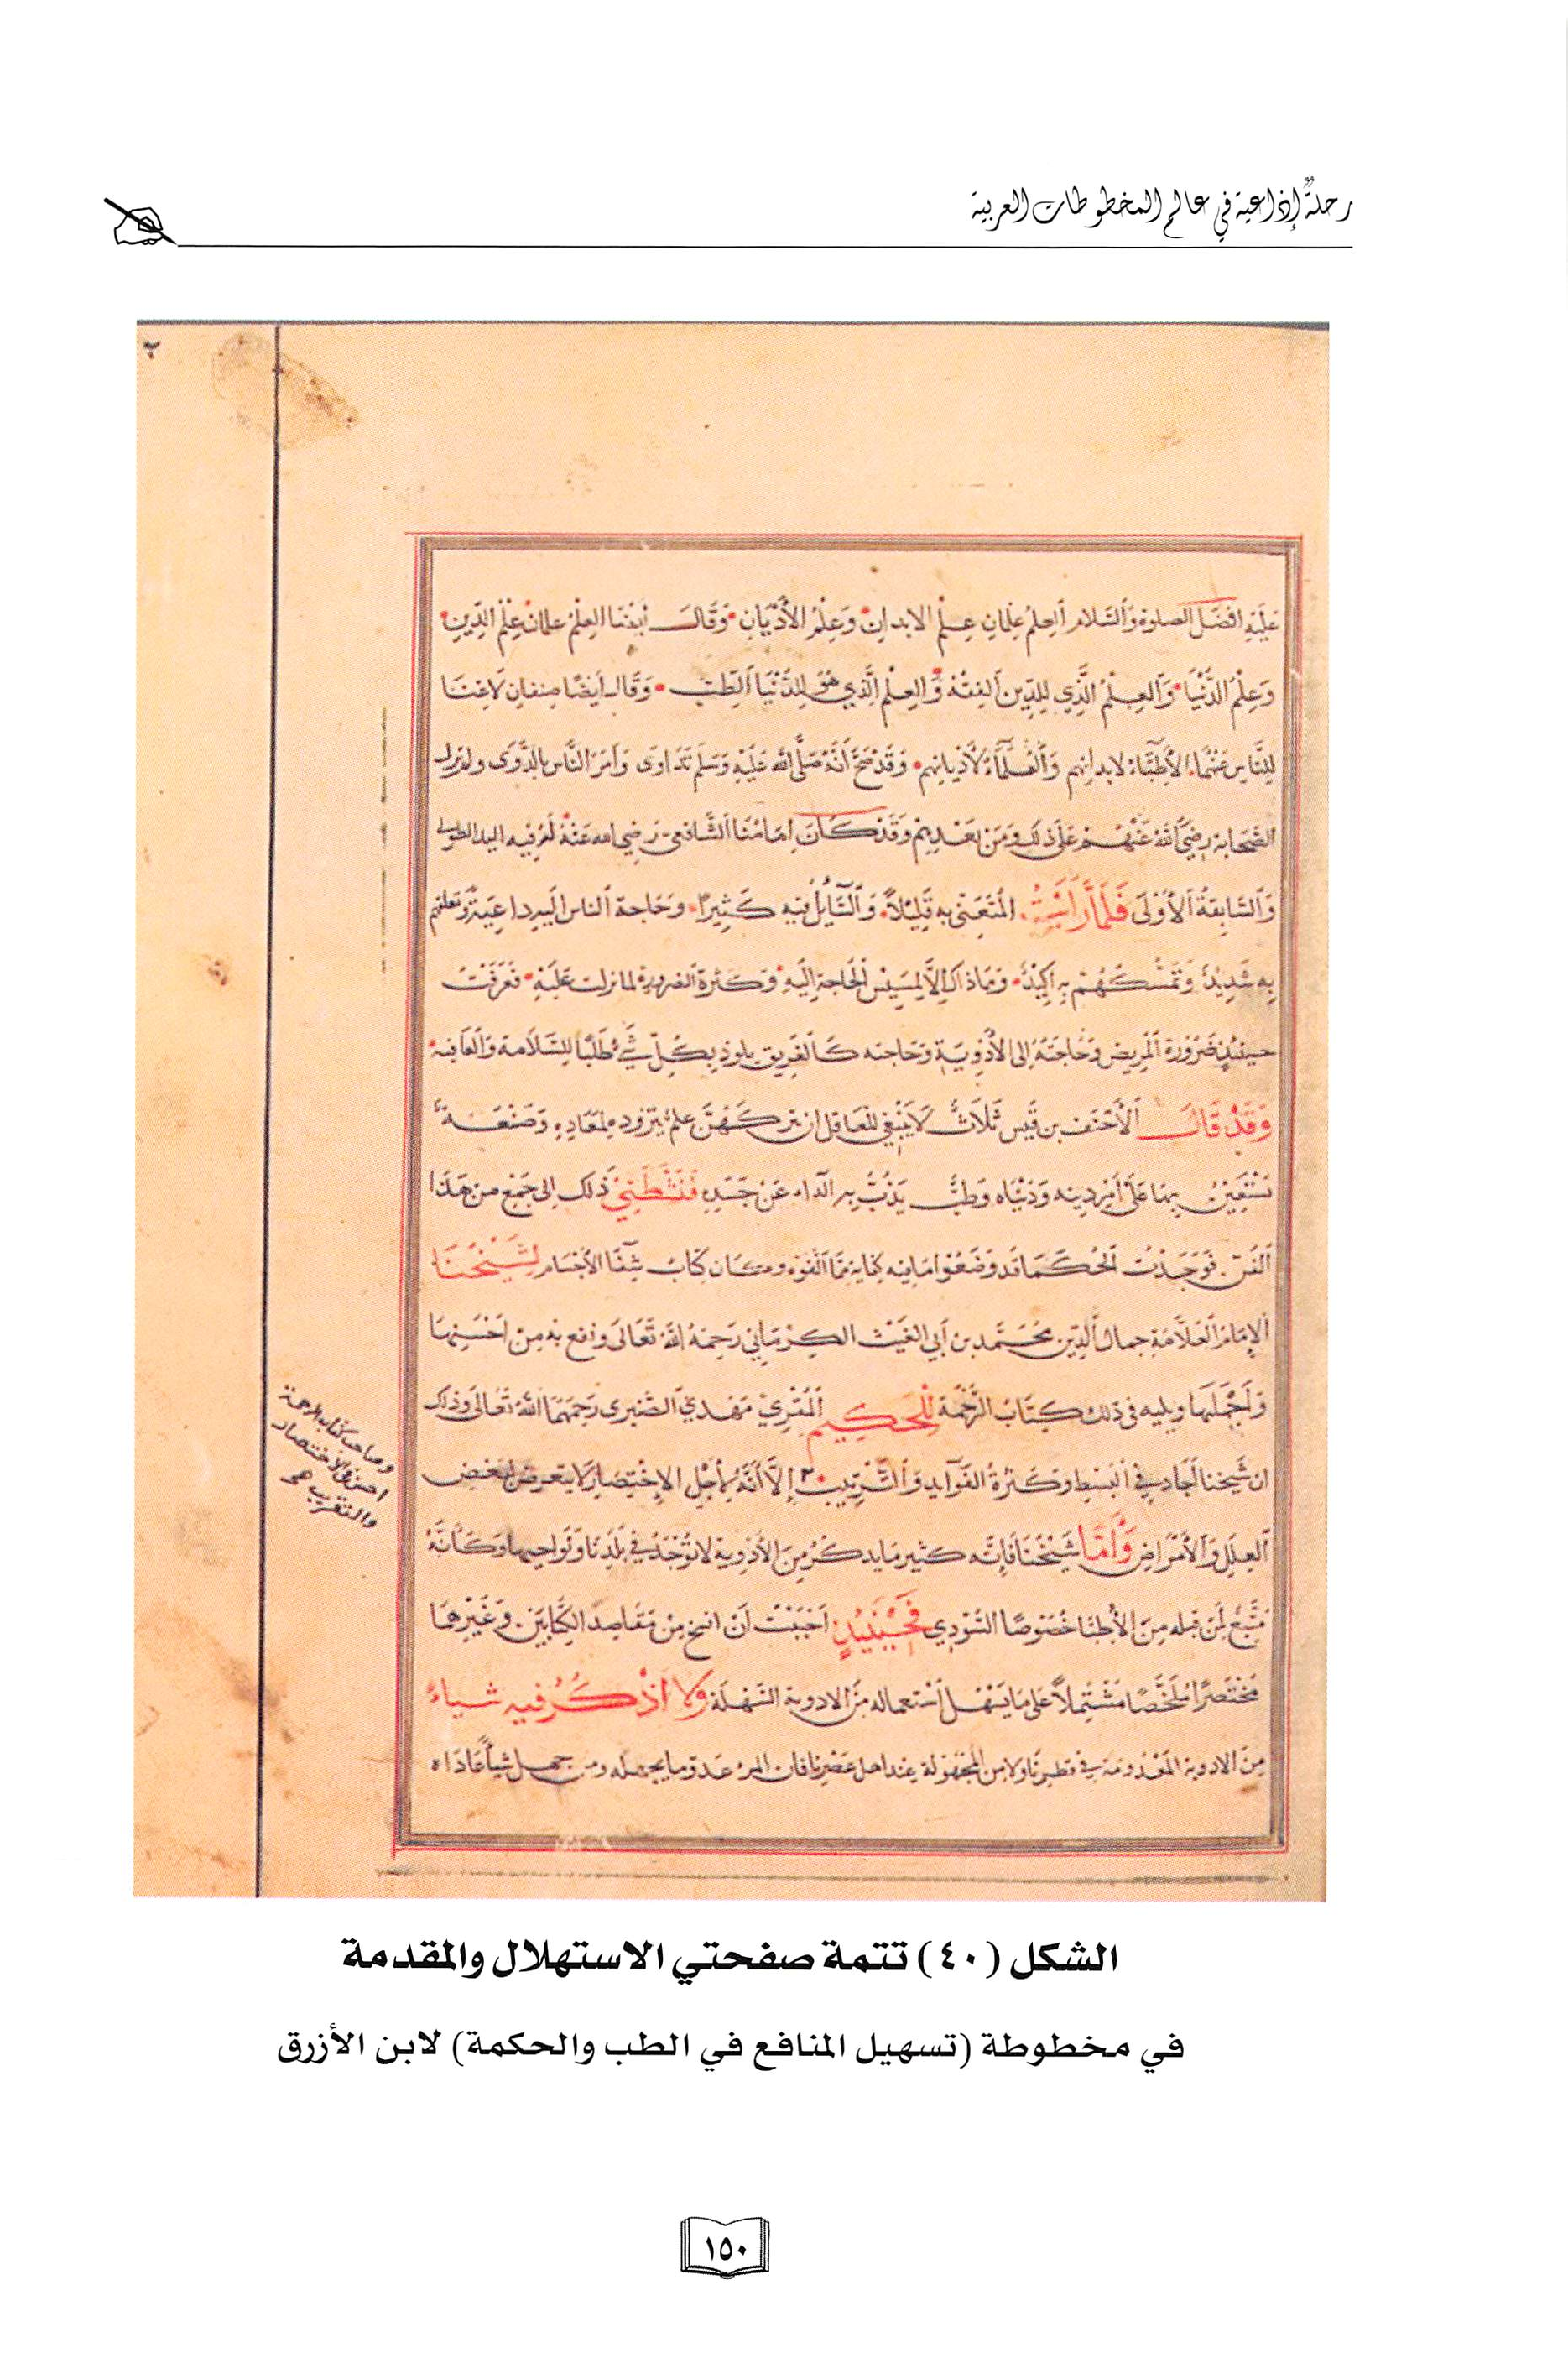 رحلةٌ إذاعية في عالم المخطوطات العربية
٢
عَلَيْهِ افضَل الصلوة وَالسَّلام العِلمُ عِلمَانِ عِلْمُ الابدانِ وَعِلمُ الأدْيَانِ وَقَالَ أيضًا العِلمُ علمان عِلمُ الدِّينِ
وَعِلْمُ الدُّنْيَا وَالعِلْمُ الَّذِي لِلدِّينِ الفِقهُ وَالعِلْم الَّذِي هُوَ لِلدُّنْيَا الطِّبّ وَقَالَ أيضًا صِنفانِ لَاغِنَا
لِلنَّاسِ عَنْهُمَا الأَطِبَّاءُ لابدانِهم وَالعُلَمَاءُ لأَدْيانِهم وَقَدْ صَحَّ أنَّهُ صَلَّى اللهُ عَلَيْهِ وَسَلَّم تَدَاوَى وَأمَرَ النَّاسَ بالدَّوَى ولم يزل
الصَّحَابة رضيَ اللهُ عَنْهُم عَلى ذلك وَمَن بعَدهم وَقَدْ كَانَ اِمَامُنَا الشَّافعى رَضِي الله عَنْهُ لَهُ فيه اليد الطولى
وَالسَّابِقةُ الأُوْلَى فَلَمَّا رَأيْتُ المُعْتَنِى به قَلِيْلاً وَالسَّايِلُ فيْهِ كَثِيرًا وَحَاجة الناس اليه داعِيَةٌ وتعلقهم
بِهِ شَدِيْدٌ وَتَمَسُّكُهُمْ بِهِ اَكِيْدٌ وَمَا ذاك إلاَّ لِمَسِيْسِ الحَاجةِ إلَيْهِ وَكثرة الضرورة لما نزلت عَليْهِ فَعَرفْتُ
حينَئِذٍ ضَرُورَة المَرِيض وَحَاجَتَهُ إلى الأدْوِيَةِ وَحَاجته كَالغَرِيق يلوذ بِكُلّ شَيْء طلبًا لِلسَّلامة وَالعَافيه
وَقَدْ قَالَ الأحْنَف بن قَيس ثَلَاثٌ لَا يَنْبَغِي للعَاقِل ان يتركَهُنَّ علمٌ يتزوده لِمعَادِهِ وَصَنْعَةٌ
يَسْتَعِيْنُ بِهَا عَلَى أمْرِ دِينه وَدُنْيَاه وَطِبٌّ يَذُبُّ بِهِ الدَّاء عَنْ جَسَدِه فَنَشَّطَنِي ذَلك إلى جَمْعِ من هَذَا
الفَنّ فَوَجَدْتُ الحُكَمَا قد وَضَعُوا مَا فيْه كِفاية مِمَّا الّفُوْه وكان كِتابُ شِفَا الأجْسَام لِشَيْخُنَا
الإمَام العَلَّامَةِ جمالُ الدّيْن مُحَمَّد بن أبي الغَيْث الكِرْمَاني رَحِمَهُ اللهُ تَعَالَى ونفع به مِن احْسَنِهَا
وَأجْمَلَهَا ويليه فى ذلك كِتَابُ الرَّحْمَة لِلْحَكِيم المُقرِيْ مَهْدِي الصّنبرى رَحِمَهُمَا اللهُ تَعَالَى وَذلك
ان شَيخنا أجَاد في البَسْط وَكَثْرةُ الفَوايد وَالتَّرْتِيب إلَّا أنَّهُ لأجْلِ الإختصَار لَا يتعرض لبعَض
العِلَل وَالأمْرَاض وَأمَّا شَيْخُنَا فَإِنَّه كثير مَا يذكُرُ مِن الأَدْوِية لا تُوْجَدُ في بَلَدِنَا وَنَواحيها وَكَأنَّهُ
مُتَّبِعٌ لِمَنْ قبله مِن الأطِبَّا خُصُوصًا السُّوَيدِي فَحِيْنَئِذٍ احْبَبْتُ أنْ انسخ مِنْ مَقاصِد الكِتَابَيْن وَغَيْرِهمَا
مُخْتصرًا مُلخّصًا مُشْتَمِلاً عَلى مَا يَسْهُلُ اسْتعماله مِنَ الادوية السّهْلَة وَلا اذْكُرُ فيه شياءً
مِنَ الادوية المَعْدُومَة في قطرنَا ولا من المجْهُولة عِند اهل عَصْرِنَا فان المرءَ عدو ما يجهله ومن جهل شيأً عَادَاه
وصاحب كتاب الرحمة
احسن في الاختصار
والتقريب صح
الشكل (٤٠) تتمة صفحتي الاستهلال والمقدمة
في مخطوطة (تسهيل المنافع في الطب والحكمة) لابن الأزرق
١٥٠